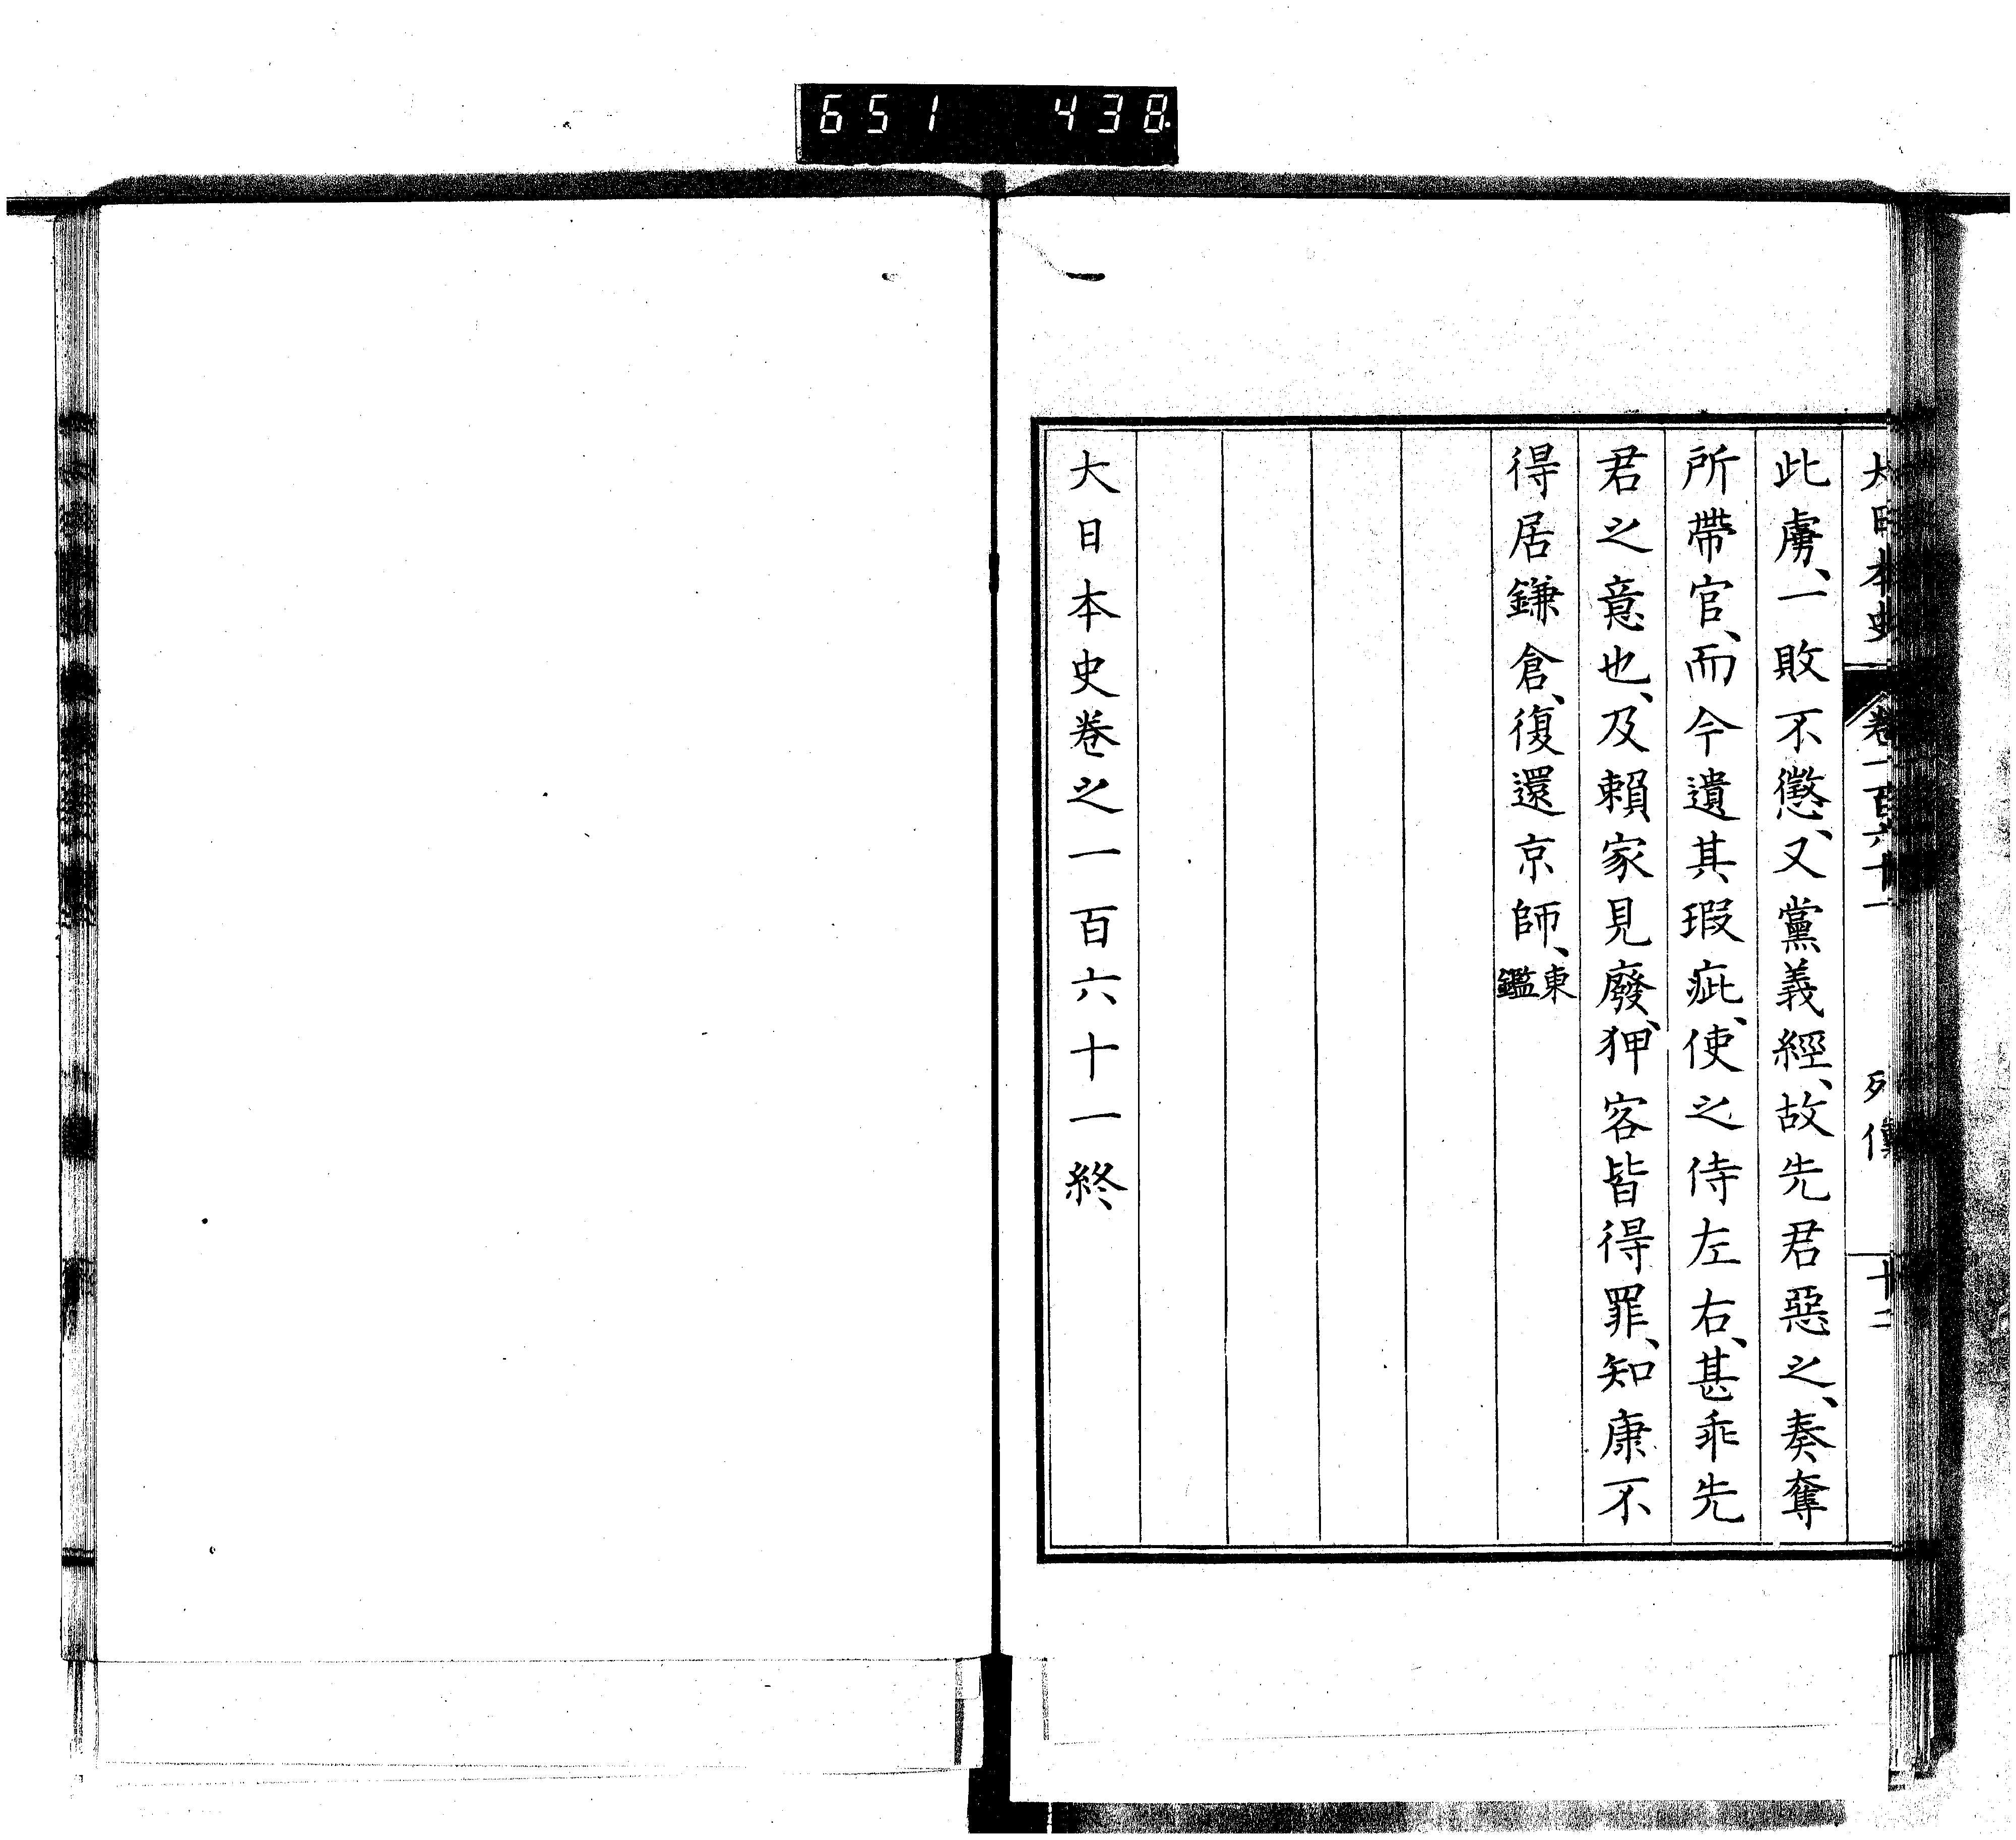 651 438
大日本史 卷一百六十一 列傳 十二
此虜、一敗不懲、又黨義經、故先君惡之、奏奪
所帶官、而今遺其瑕疵、使之侍左右、甚乖先
君之意也、及賴家見廢、狎客皆得罪、知康不
得居鎌倉、復還京師、東鑑
大日本史卷之一百六十一終